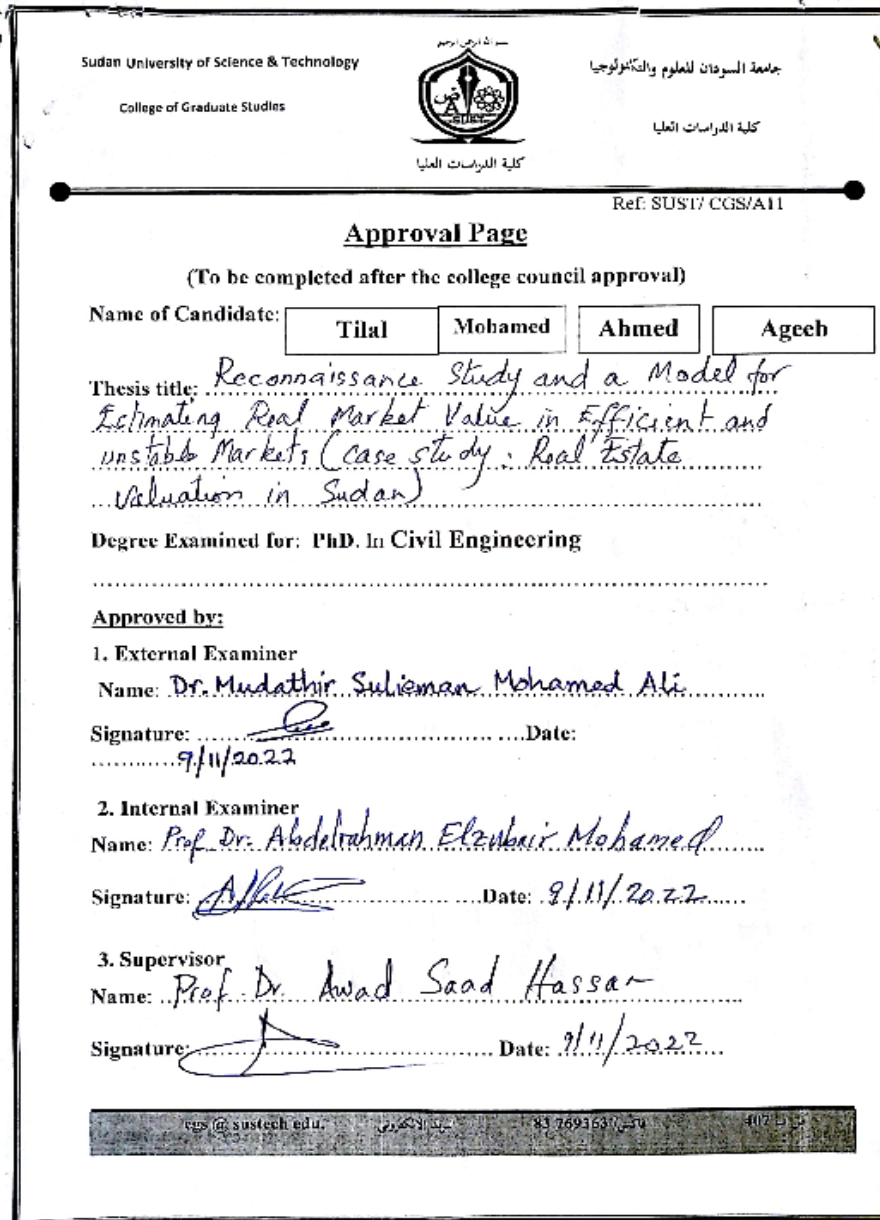 بسم الله الرحمن الرحيم
Sudan University of Science & Technology
جامعة السودان للعلوم والتكنولوجيا
College of Graduate Studies
كلية الدراسات العليا
SUST
كلية الدراسات العليا
Ref: SUST/ CGS/A11
Approval Page
(To be completed after the college council approval)
Name of Candidate: Tilal Mohamed Ahmed Ageeb
Thesis title: Reconnaissance Study and a Model for
Estimating Real Market Value in Efficient and
unstable Markets (case study: Real Estate
Valuation in Sudan)
Degree Examined for: PhD. In Civil Engineering
Approved by:
1. External Examiner
Name: Dr. Mudathir Sulieman Mohamed Ali
Signature: Date:
9/11/2022
2. Internal Examiner
Name: Prof. Dr. Abdelrahman Elzubair Mohamed
Signature: Date: 9/11/2022
3. Supervisor
Name: Prof. Dr. Awad Saad Hassan
Signature: Date: 9/11/2022
cgs @ sustech edu. بريد الالكتروني 83 769363 فاكس 407 ص ب